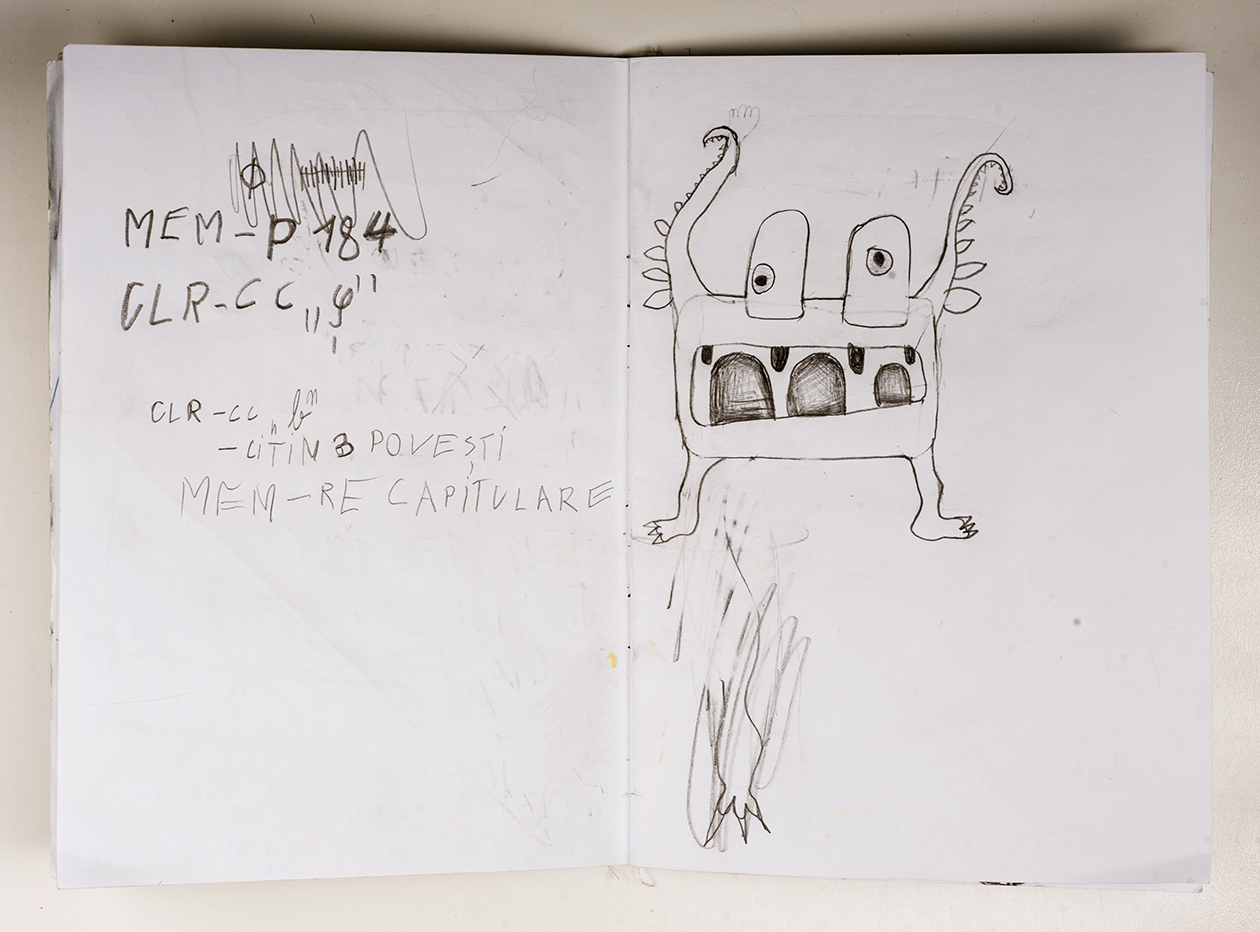 MEM-P 184
CLR-CC „φ"
CLR-CC „b"
-CITIM 3 POVEȘTI
MEM-RECAPITULARE